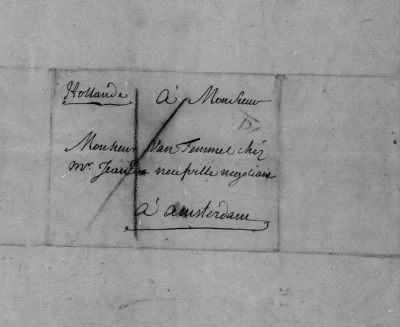 Hollande
à Monsieur
Monsieur Van Temmel chéz
Mr. Jean de neufville negotiant
à Amsterdam